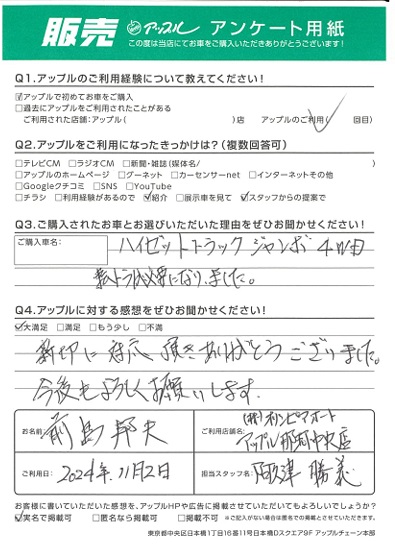 販売 アップル アンケート用紙
この度は当店にてお車をご購入いただきありがとうございます!
Q1.アップルのご利用経験について教えてください!
アップルで初めてお車をご購入
過去にアップルをご利用されたことがある
ご利用された店舗:アップル( )店 アップルのご利用( 回目)
Q2.アップルをご利用になったきっかけは?(複数回答可)
テレビCM ラジオCM 新聞・雑誌(媒体名/ )
アップルのホームページ グーネット カーセンサーnet インターネットその他
Googleクチコミ SNS YouTube
チラシ 利用経験があるので 紹介 展示車を見て スタッフからの提案で
Q3.ご購入されたお車とお選びいただいた理由をぜひお聞かせください!
ご購入車名: ハイゼットトラック ジャンボ 4WD
軽トラが必要になりました。
Q4.アップルに対する感想をぜひお聞かせください!
大満足 満足 もう少し 不満
親切に対応頂きありがとうございました。
今後もよろしくお願いします。
お名前 前島邦夫
ご利用店舗名: (株)オリンピアオート
アップル那珂中央店
ご利用日: 2024年11月2日
担当スタッフ名: 阿久津 勝義
お客様に書いていただいた感想を、アップルHPや広告に掲載させていただいてもよろしいでしょうか?
実名で掲載可 匿名なら掲載可 掲載不可 ※ご記入がない場合は匿名での掲載とさせていただきます。
東京都中央区日本橋1丁目16番11号日本橋Dスクエア9F アップルチェーン本部